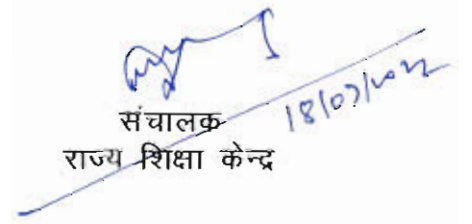 संचालक
18/07/2022
राज्य शिक्षा केन्द्र